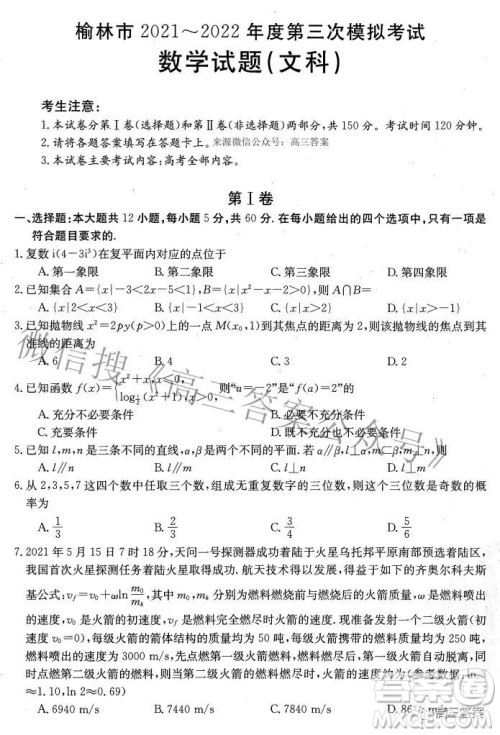 榆林市 2021～2022 年度第三次模拟考试
数学试题(文科)
考生注意:
1.本试卷分第Ⅰ卷(选择题)和第Ⅱ卷(非选择题)两部分,共 150 分。考试时间 120 分钟。
2.请将各题答案填写在答题卡上。 来源微信公众号：高三答案
3.本试卷主要考试内容:高考全部内容。
第Ⅰ卷
一、选择题:本大题共 12 小题,每小题 5 分,共 60 分.在每小题给出的四个选项中,只有一项是
符合题目要求的.
1.复数 i(4-3i³)在复平面内对应的点位于
A.第一象限 B.第二象限 C.第三象限 D.第四象限
2.已知集合 A={x|-3<2x-5<1},B={x|-5<1-2x<3},则 A∩B=
A.{x|2<x<3} B.{x|1<x<2} C.{x|-1<x<3} D.{x|1<x<3}
3.已知抛物线 x²=2py(p>0)上一点 M(x₀,1)到焦点的距离为 3,则该抛物线的焦点到其
准线的距离为
A.6 B.4 C.3 D.2
4.已知函数 f(x)={x²+x,x<0, 则“a=-2”是“f(a)=2”的
A.充分不必要条件 B.必要不充分条件
C.充要条件 D.既不充分也不必要条件
5.已知 l,m,n 是三条不同的直线,α,β是两个不同的平面. 若α∥β,
A.l∥n B.l∥m C.l⊥n D.l⊥m
6.从 2,3,5,7 这四个数中任取三个数,组成无重复数字的三位数,则这个三位数是奇数的概
率为
A.1/3 B.2/3 C.3/4 D.5/6
7.2021 年 5 月 15 日 7 时 18 分,天问一号探测器成功着陆于火星乌托邦平原南部预选着陆区,
我国首次火星探测任务着陆火星取得成功. 航天技术得以发展的基础之一为齐奥尔科夫斯
基公式:v_f=v₀+ωln m₀/m_k,
出的速度,v₀为火箭的初速度,v_f为燃料完全燃尽时火箭的速度.现作如下假定:准备发射一个二级火箭(初
始速度 v₀=0),每级火箭的箭体结构的质量为 50 吨,每级火箭携带的燃料质量均为 250 吨,
燃料喷出的速度为 3000 m/s,
≈1.10,ln 2≈0.69)
A.6940 m/s B.6740 m/s C.7840 m/s
微信搜《高三答案公众号》